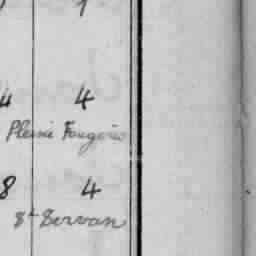 1
4 4
Pleine Fougère
8 4
St Servan